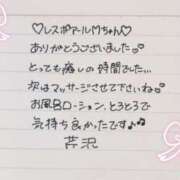 ♡レスポアールMちゃん♡
ありがとうございました。
とっても癒しの時間でした…
次はマッサージさせて下さいね
お風呂ローション、とろとろで
気持ち良かったです♪
芹沢